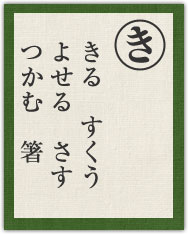 き
きる　すくう
よせる　さす
つかむ　箸